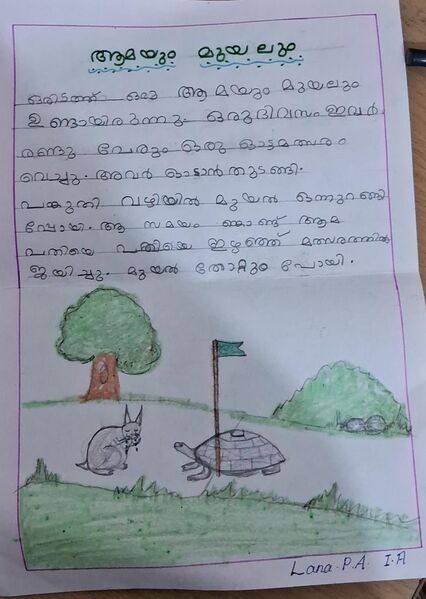 ആമയും മുയലും
ഒരിടത്ത് ഒരു ആമയും മുയലും
ഉണ്ടായിരുന്നു. ഒരുദിവസം ഇവർ
രണ്ടു പേരും ഒരു ഓട്ടമത്സരം
വെച്ചു. അവർ ഓടാൻ തുടങ്ങി.
പകുതി വഴിയിൽ മുയൽ ഒന്നുറങ്ങി
പ്പോയി. ആ സമയം കൊണ്ട് ആമ
പതിയെ പതിയെ ഇഴഞ്ഞ് മത്സരത്തിൽ
ജയിച്ചു. മുയൽ തോറ്റും പോയി.
Lana.P.A I.A